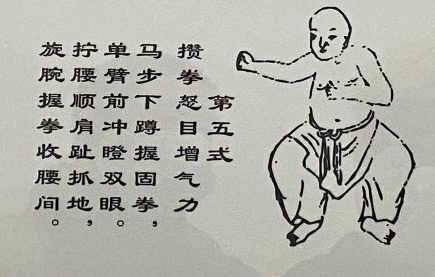 第五式
攒拳怒目增气力
马步下蹲握固拳，
单臂前冲瞪双眼。
拧腰顺肩趾抓地，
旋腕握拳收腰间。